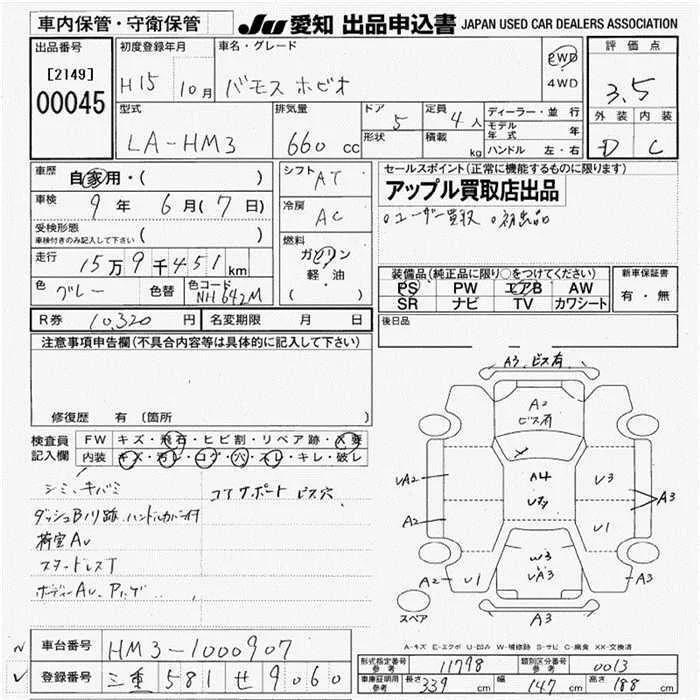 車内保管・守衛保管
JU 愛知 出品申込書 JAPAN USED CAR DEALERS ASSOCIATION
出品番号
[2149]
00045
初度登録年月
H15 10月
車名・グレード
バモス ホビオ
2WD
4WD
評価点
3.5
外装 内装
D C
型式
LA-HM3
排気量
660 cc
ドア 5
形状
定員 4人
積載 kg
ディーラー・並行
モデル年式 年
ハンドル 左・右
車歴
自家用・( )
車検 9年 6月(7日)
受検形態
車検付きのみ記入して下さい ( )
走行 15万9千451km
色 グレー 色替 色コード NH642M
シフト AT
冷房 AC
燃料
ガソリン
軽・油
( )
セールスポイント(正常に機能するものに限ります)
アップル買取店出品
○ユーザー買取 ○初出品
装備品(純正品に限り○をつけてください)
PS PW エアB AW
SR ナビ TV カワシート
新車保証書
有・無
後日品
R券 10,320円 名変期限 月 日
注意事項申告欄(不具合内容等は具体的に記入して下さい)
修復歴 有〔箇所
検査員記入欄
FW キズ・飛石・ヒビ割・リペア跡・X要
内装 キズ・汚レ・コゲ・穴・スレ・キレ・破レ
シミ、キバミ
コアサポート ビス穴
ダッシュB ノリ跡、ハンドルカバー付
荷室AU
スタッドレスT
A3 ビス有
A2
ビス有
A4
Uタ
UA2
A2
U3
U1
A3
W3
UA3
A2
U1
A3
A3
スペア
A-キズ E-エクボ U-凹み W-補修跡 S-サビ C-腐食 XX-交換済
車台番号 HM3-1000907
登録番号 三重 581 せ 9060
形式指定番号 参考 11798 類別区分番号 参考 0013
車庫証明用 参考 長さ 339 cm 幅 147 cm 高さ 188 cm